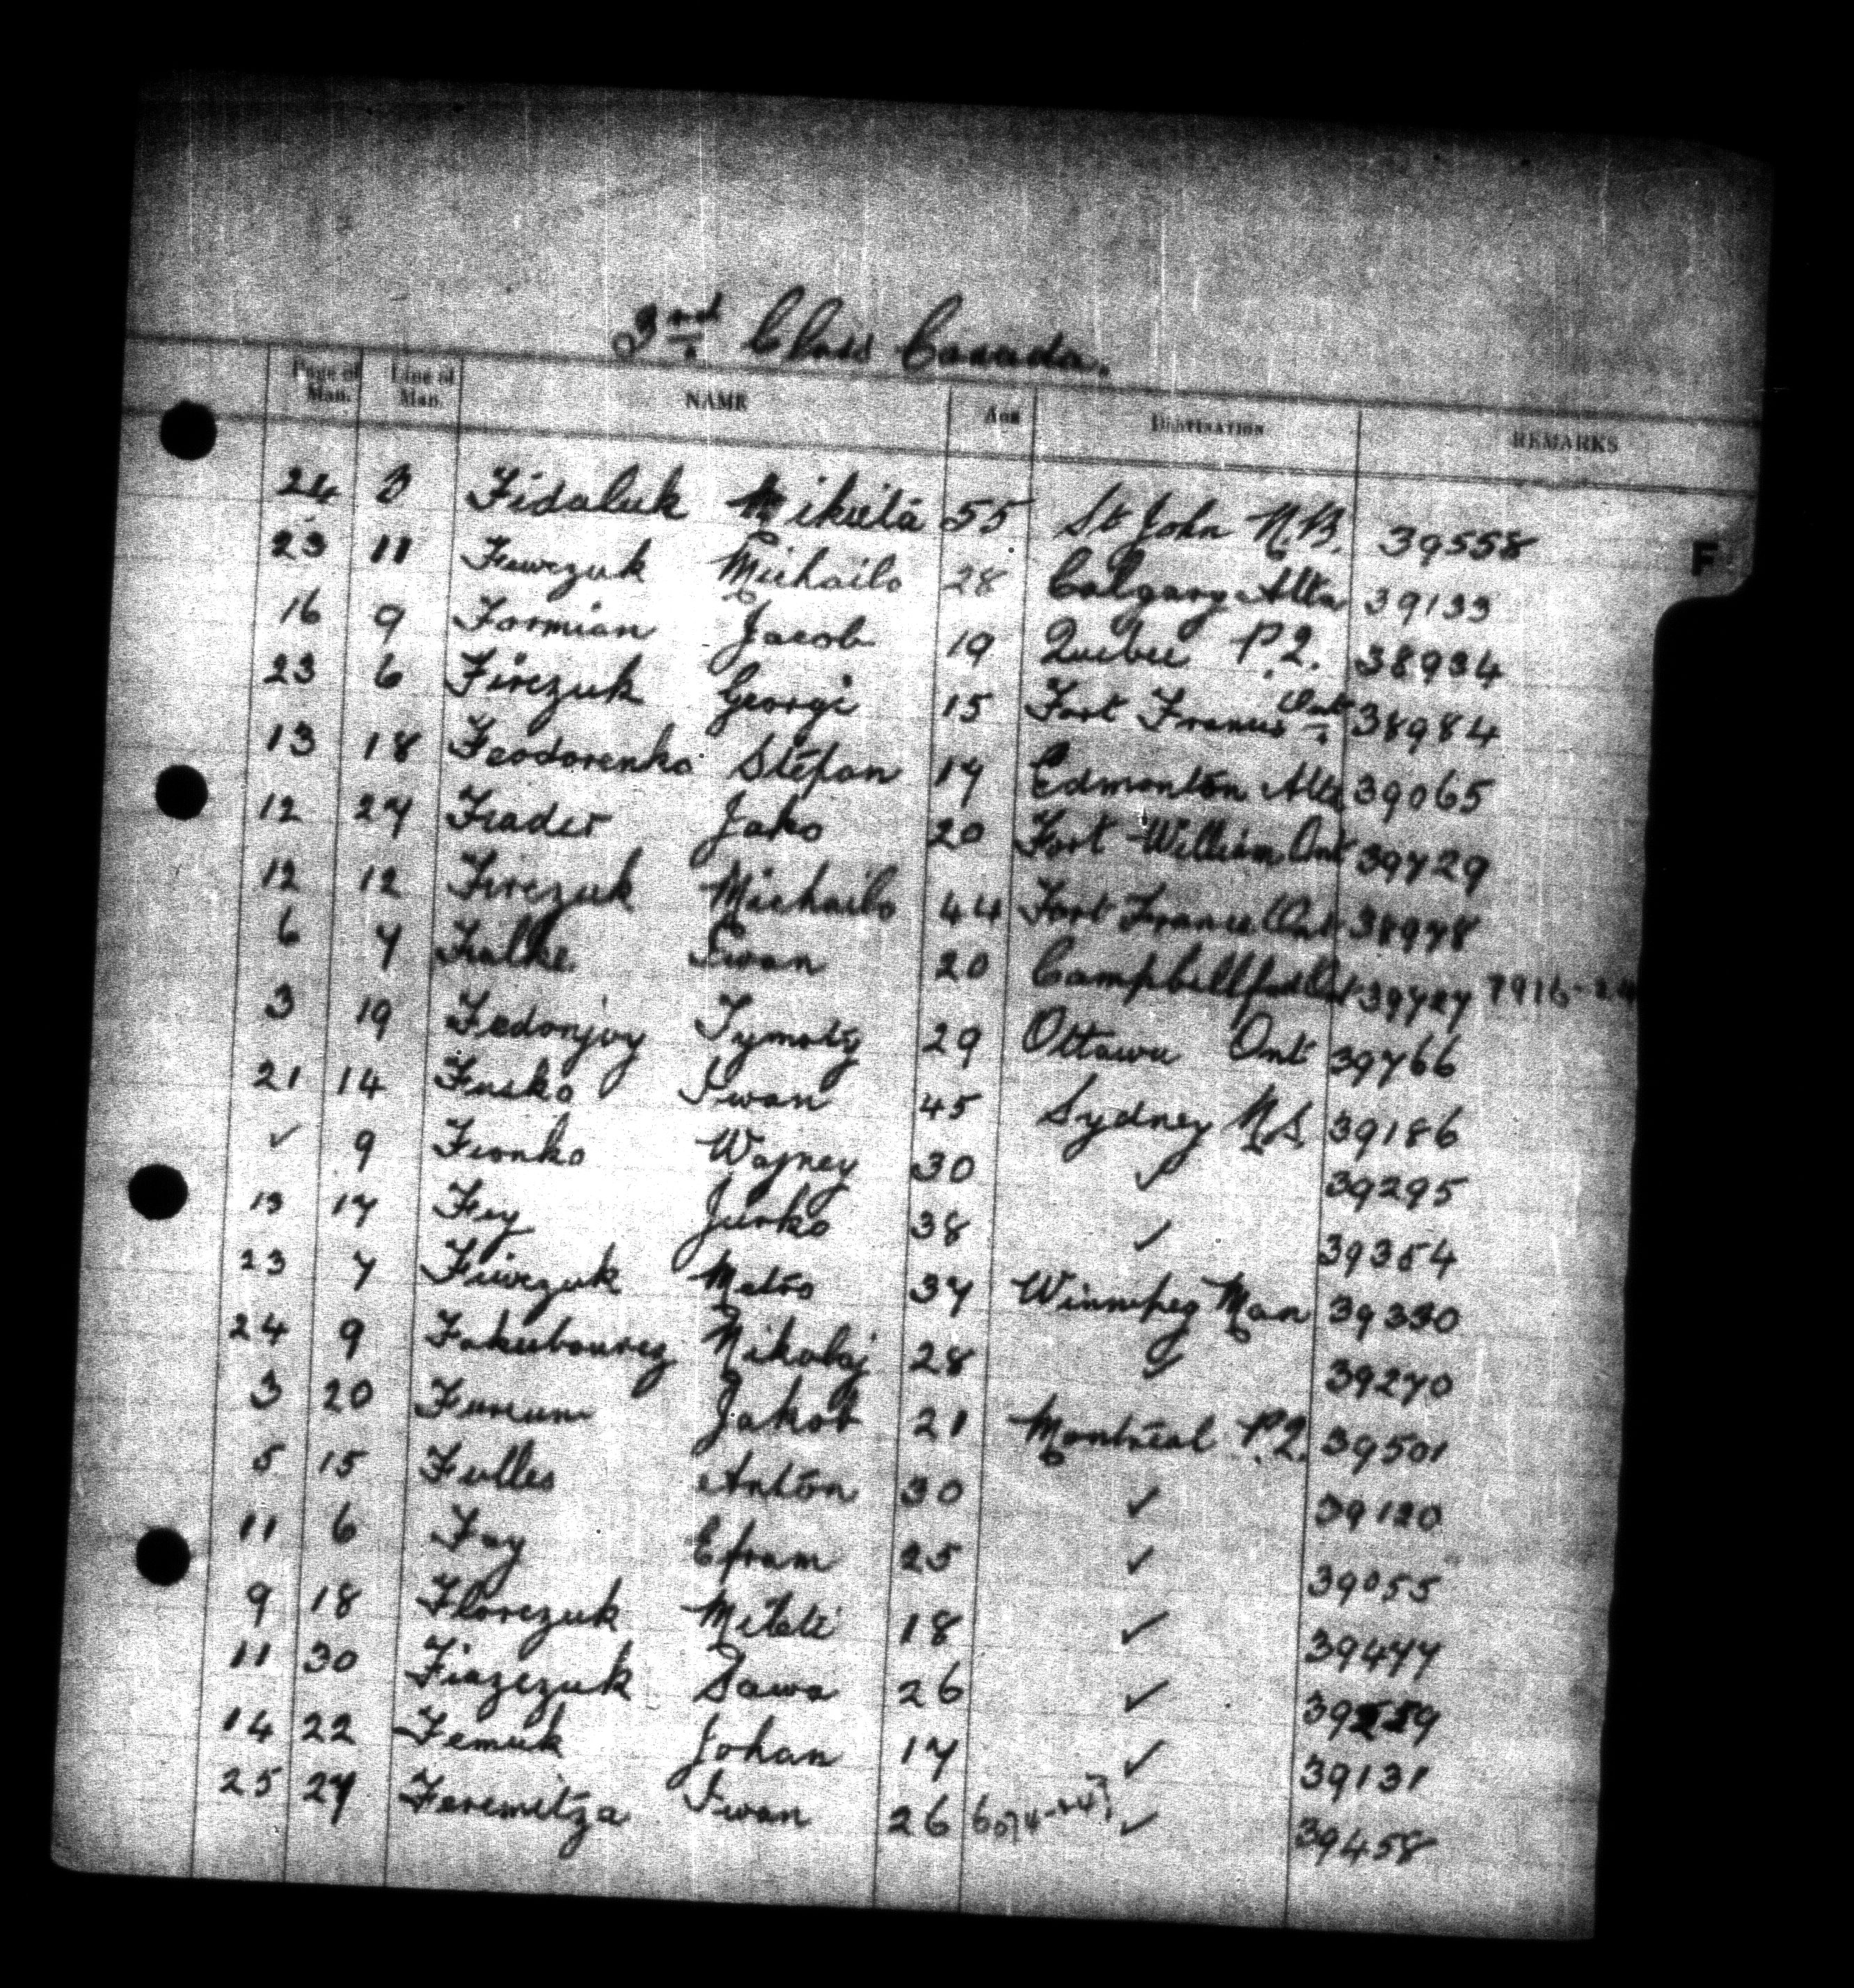 3rd Class Canada.
Page of Man. Line of Man. NAME AGE DESTINATION REMARKS
F
24 3 Fidaluk Mikuta 55 St John N.B. 39558
23 11 Fewczuk Michailo 28 Calgary Alta 39133
16 9 Formian Jacob 19 Quebec P.Q. 38934
23 6 Firczuk Georgi 15 Fort Francis Ont 38984
13 18 Feodorenko Stefan 17 Edmonton Alta 39065
12 27 Frader Jako 20 Fort William Ont 39729
12 12 Firczuk Michailo 44 Fort Francis Ont 38978
6 7 Iwan 20 Campbellford Ont 39727 7916-24
3 19 Fedonjoy Tymoty 29 Ottawa Ont 39766
21 14 Fusko Iwan 45 Sydney N.S. 39186
✓ 9 Fronko Wajney 30 ✓ 39295
13 17 Fey Jurko 38 ✓ 39354
23 7 Fiwczuk Metro 37 Winnipeg Man 39330
24 9 Fakubowicz Nikolaj 28 ✓ 39270
3 20 Jakob 21 Montreal P.Q. 39501
5 15 Fulles Anton 30 ✓ 39120
11 6 Foy Efram 25 ✓ 39055
9 18 Florczuk Mitoti 18 ✓ 39477
11 30 Fiazczuk Sawa 26 ✓
14 22 Femuk Johan 17 ✓ 39131
25 27 Feremitza Iwan 26 ✓ 39458